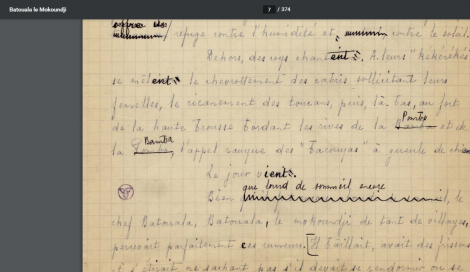 Batouala le Mokoundji
7 / 374
refuge contre l'humidité et contre le soleil.
Dehors, des coqs chantent. A leurs "kékérékés
se mêlent le chevrottement des cabris sollicitant leurs
femelles, le ricanement des toucans, puis, là-bas, au fort
de la haute brousse bordant les rives de la Pombo et de
la Bamba, l'appel rauque des "Bacouyas" à gueule de chien
Le jour vient.
que lourd de sommeil encore
Bien le
chef Batouala, Batouala, le mokoundji de tant de villages,
percevait parfaitement ces rumeurs. Il bâillait, avait des frissons
et s'étirait ne sachant pas s'il devait se rendormir ou se